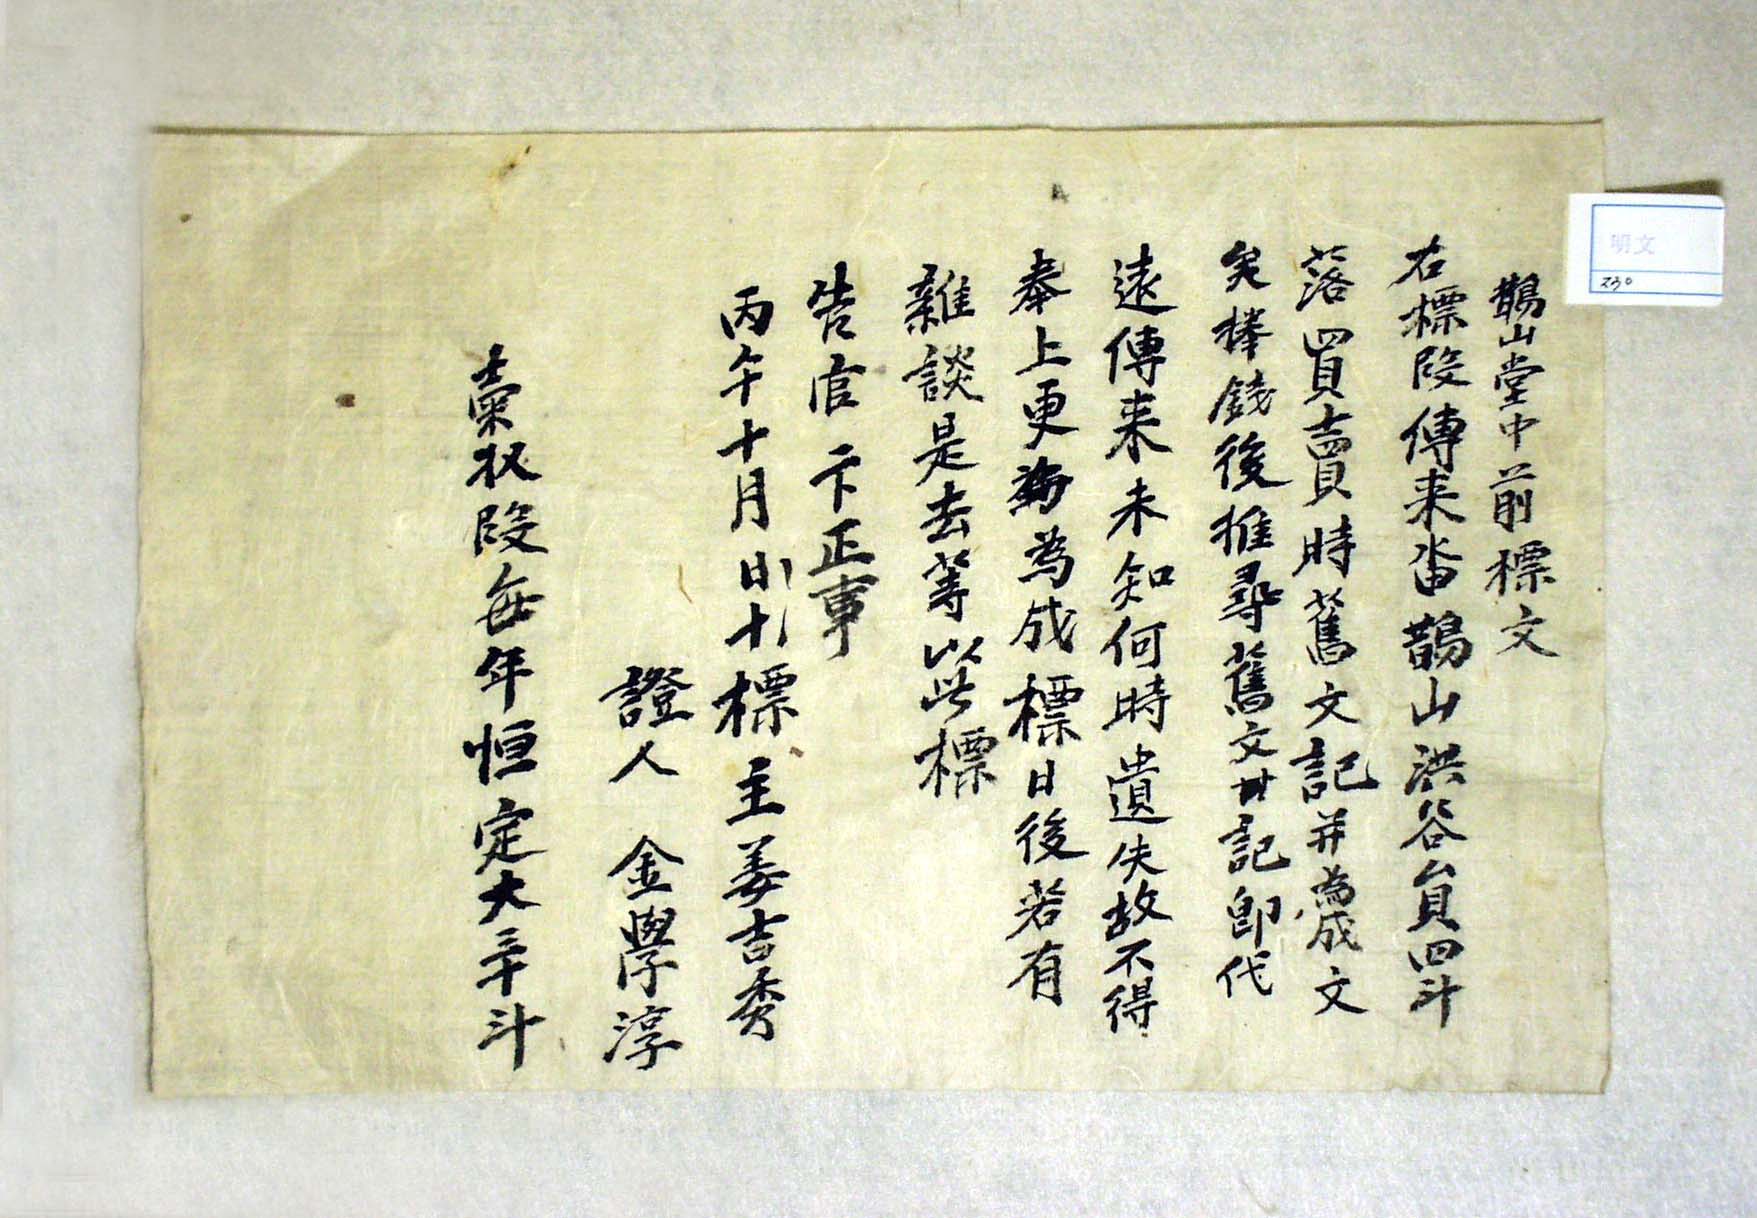 鵲山堂中前標文
右標段傳来畓鵲山洪谷員四斗
落買賣時舊文記并為成文
矣捧錢後推尋舊文記即代
遠傳来未知何時遺失故不得
奉上更為成標日後若有
雜談是去等以此標
告官卞正事
丙午十月 標主姜吉秀
證人 金學淳
段每年恒定大三十斗
明文
230